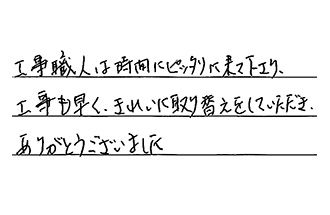 工事職人は時間にピッタリに来て下さり、
工事も早く、きれいに取り替えをしていただき、
ありがとうございました